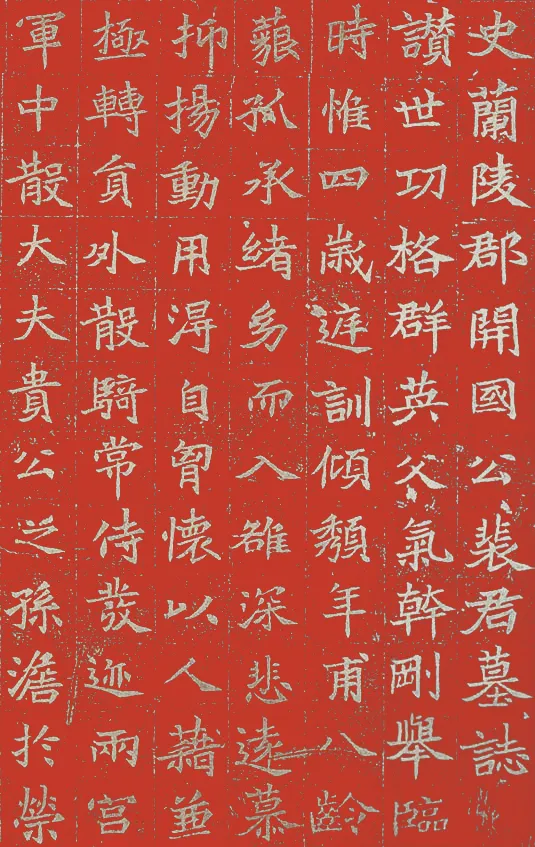 史蘭陵郡開國公裴君墓誌
讚世功格群英父氣幹剛舉臨
時惟四歲遊訓傾頹年甫八齡
藐孤承緒幼而入雒深悲遠慕
抑揚動用淂自匈懷以人藉並
極轉負外散騎常侍發迹兩宮
軍中散大夫貴公之孫澹於榮